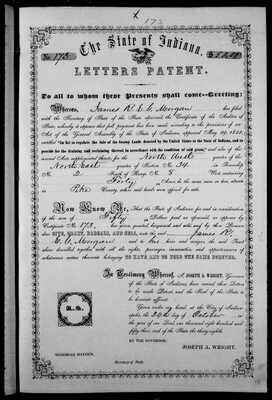 173
The State of Indiana,
No. 173
LETTERS PATENT.
To all to whom these Presents shall come—Greeting:
Whereas, James W. & C. Morgan has filed
with the Secretary of State of the State aforesaid the Certificate of the Auditor of
State, whereby it appears that full payment has been made according to the provisions of an
Act of the General Assembly of the State of Indiana, approved May
entitled "An Act to regulate the Sale of the Swamp Lands donated by the United States to the State of Indiana, and to
provide for the draining and reclaiming thereof in accordance with the condition of said grant,"
several Acts supplemental thereto, for the North West quarter of the
North East quarter of Section No. 34 in Township
No. 2 of Range No. 8 West containing
Forty Acres be the same more or less, situate
in Pike County, when said lands were offered for sale.
Now Know Ye, That the State of Indiana for and in consideration
of the sum of Fifty Dollars paid as aforesaid, as appears by
Certificate No. 173, has given, granted, bargained and sold, and by these Presents
does GIVE, GRANT, BARGAIN, AND SELL, unto the said James W.
Morgan and to heirs and assigns the said Tract
above described together with all the rights, privileges, immunities, and appurtenances of
whatsoever nature thereunto belonging TO HAVE AND TO HOLD THE SAME FOREVER.
In Testimony Whereof, I, JOSEPH A. WRIGHT, Governor
of the State of Indiana have caused these Letters
to be made Patent and the Seal of the State to
be hereunto affixed.
Given under my hand at the City of Indian-
apolis, the 24th day of October in
the year of our Lord, one thousand eight hundred and
fifty three and of the State the thirty eighth.
BY THE GOVERNOR,
JOSEPH A. WRIGHT.
NEHEMIAH HAYDEN,
Secretary of State.